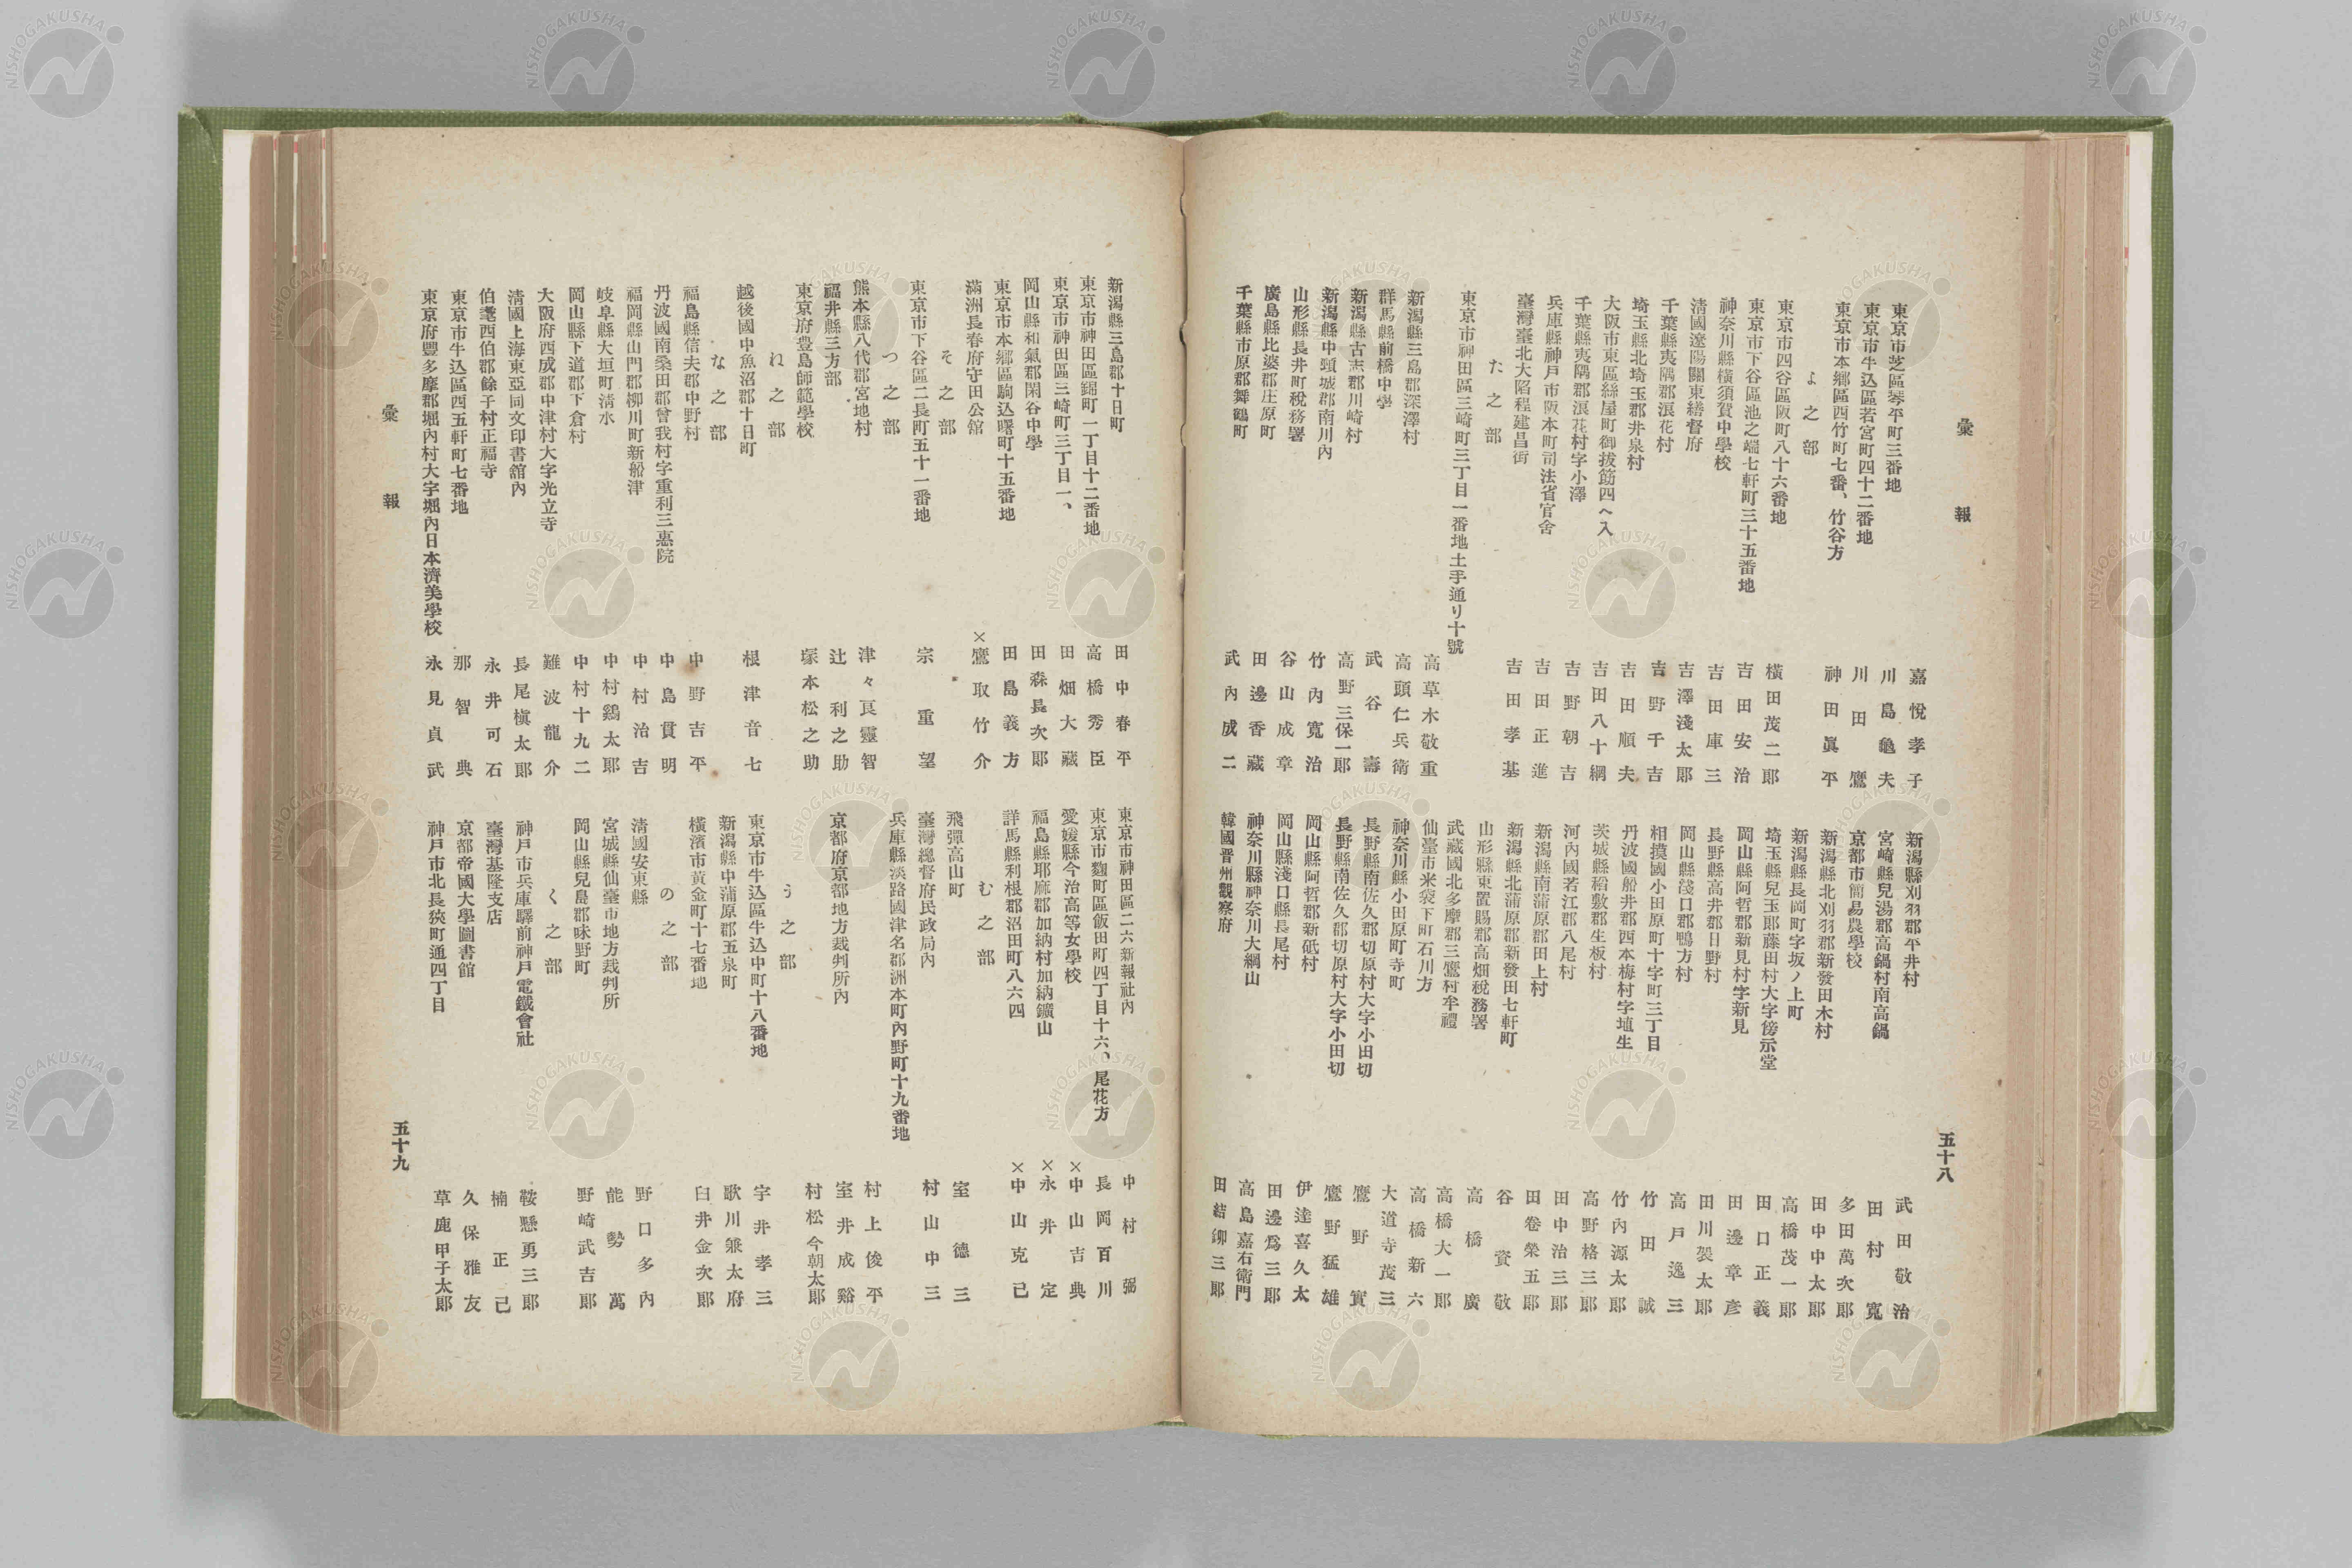 彙報
東京市芝區琴平町三番地　嘉悅孝子
東京市牛込區若宮町四十二番地　川島龜夫
東京市本鄉區西竹町七番、竹谷方　川田鷹
神田眞平
よ之部
東京市四谷區阪町八十六番地　橫田茂二郞
東京市下谷區池之端七軒町三十五番地　吉田安治
神奈川縣橫須賀中學校　吉田庫三
淸國遼陽關東繕督府　吉澤淺太郞
千葉縣夷隅郡浪花村　吉野千吉
埼玉縣北埼玉郡井泉村　吉田順夫
大阪市東區絲屋町御拔筋西へ入　吉田八十綱
千葉縣夷隅郡浪花村字小澤　吉野朝吉
兵庫縣神戶市阪本町司法省官舍　吉田正進
臺灣臺北大稻程建昌街　吉田孝基
た之部
東京市神田區三崎町三丁目一番地土手通り十號
高草木敬重
新潟縣三島郡深澤村　高頭仁兵衛
群馬縣前橋中學　武谷壽
新潟縣古志郡川崎村　高野三保一郞
新潟縣中頸城郡南川內　竹內寬治
山形縣長井町稅務署　谷山成章
廣島縣比婆郡庄原町　田邊香藏
千葉縣市原郡舞鶴町　武內成二
新潟縣刈羽郡平井村　武田敬治
宮崎縣兒湯郡高鍋村南高鍋　田村寬
京都市簡易農學校　多田萬次郞
新潟縣北刈羽郡新發田木村　田中中太郞
新潟縣長岡町字坂ノ上町　高橋茂一郞
埼玉縣兒玉郡藤田村大字傍示堂　田口正義
岡山縣阿哲郡新見村字新見　田邊章彥
長野縣高井郡日野村　田川袈太郞
岡山縣淺口郡鴨方村　高戶逸三
相摸國小田原町十字町三丁目　竹田誠
丹波國船井郡西本梅村字埴生　竹內源太郞
茨城縣稻敷郡生板村　高野格三郞
河內國若江郡八尾村　田中治三郞
新潟縣南蒲原郡田上村　田卷榮五郞
新潟縣北蒲原郡新發田七軒町　谷資敬
山形縣東置賜郡高畑稅務署　高橋廣
武藏國北多摩郡三鷹村牟禮　高橋大一郞
仙臺市米袋下町石川方　高橋新六
神奈川縣小田原町寺町　大道寺茂三
長野縣南佐久郡切原村大字小田切　鷹野實
長野縣南佐久郡切原村大字小田切　鷹野猛雄
岡山縣阿哲郡新砥村　伊達喜久太
岡山縣淺口縣長尾村　田邊爲三郞
神奈川縣神奈川大綱山　高島嘉右衛門
韓國晋州觀察府　田結鉚三郞
五十八
新潟縣三島郡十日町　田中春平
東京市神田區錦町一丁目十二番地　高橋秀臣
東京市神田區三崎町三丁目一、　田畑大藏
岡山縣和氣郡閑谷中學　田森長次郞
東京市本鄉區駒込曙町十五番地　田島義方
滿洲長春府守田公館　×鷹取竹介
そ之部
東京市下谷區二長町五十一番地　宗重望
つ之部
熊本縣八代郡宮地村　津々良靈智
福井縣三方部　辻利之助
東京府豊島師範學校　塚本松之助
ね之部
越後國中魚沼郡十日町　根津音七
な之部
福島縣信夫郡中野村　中野吉平
丹波國南桑田郡曾我村字重利三惠院　中島貫明
福岡縣山門郡柳川町新船津　中村治吉
岐阜縣大垣町淸水　中村鷄太郞
岡山縣下道郡下倉村　中村十九二
大阪府西成郡中津村大字光立寺　難波龍介
淸國上海東亞同文印書舘內　長尾槇太郞
伯耄西伯郡餘子村正福寺　永井可石
東京市牛込區西五軒町七番地　那智典
東京府豐多摩郡堀內村大字堀內日本濟美學校　永見貞武
東京市神田區二六新報社內　中村弼
東京市麴町區飯田町四丁目十六、尾花方　長岡百川
愛媛縣今治高等女學校　×中山吉典
福島縣耶麻郡加納村加納鑛山　×永井定
詳馬縣利根郡沼田町八六四　×中山克己
む之部
飛彈高山町　室德三
臺灣總督府民政局內　村山中三
兵庫縣淡路國津名郡洲本町內野町十九番地
村上俊平
室井成谿
京都府京都地方裁判所內　村松今朝太郞
う之部
東京市牛込區牛込中町十八番地　宇井孝三
新潟縣中蒲原郡五泉町　歌川兼太府
橫濱市黃金町十七番地　臼井金次郞
の之部
淸國安東縣　野口多內
宮城縣仙臺市地方裁判所　能勢萬
岡山縣兒島郡味野町　野崎武吉郞
く之部
神戶市兵庫驛前神戶電鐵會社　鞍懸勇三郞
臺灣基隆支店　楠正己
京都帝國大學圖書館　久保雅友
神戶市北長狹町通四丁目　草鹿甲子太郞
彙報
五十九
NISHOGAKUSHA